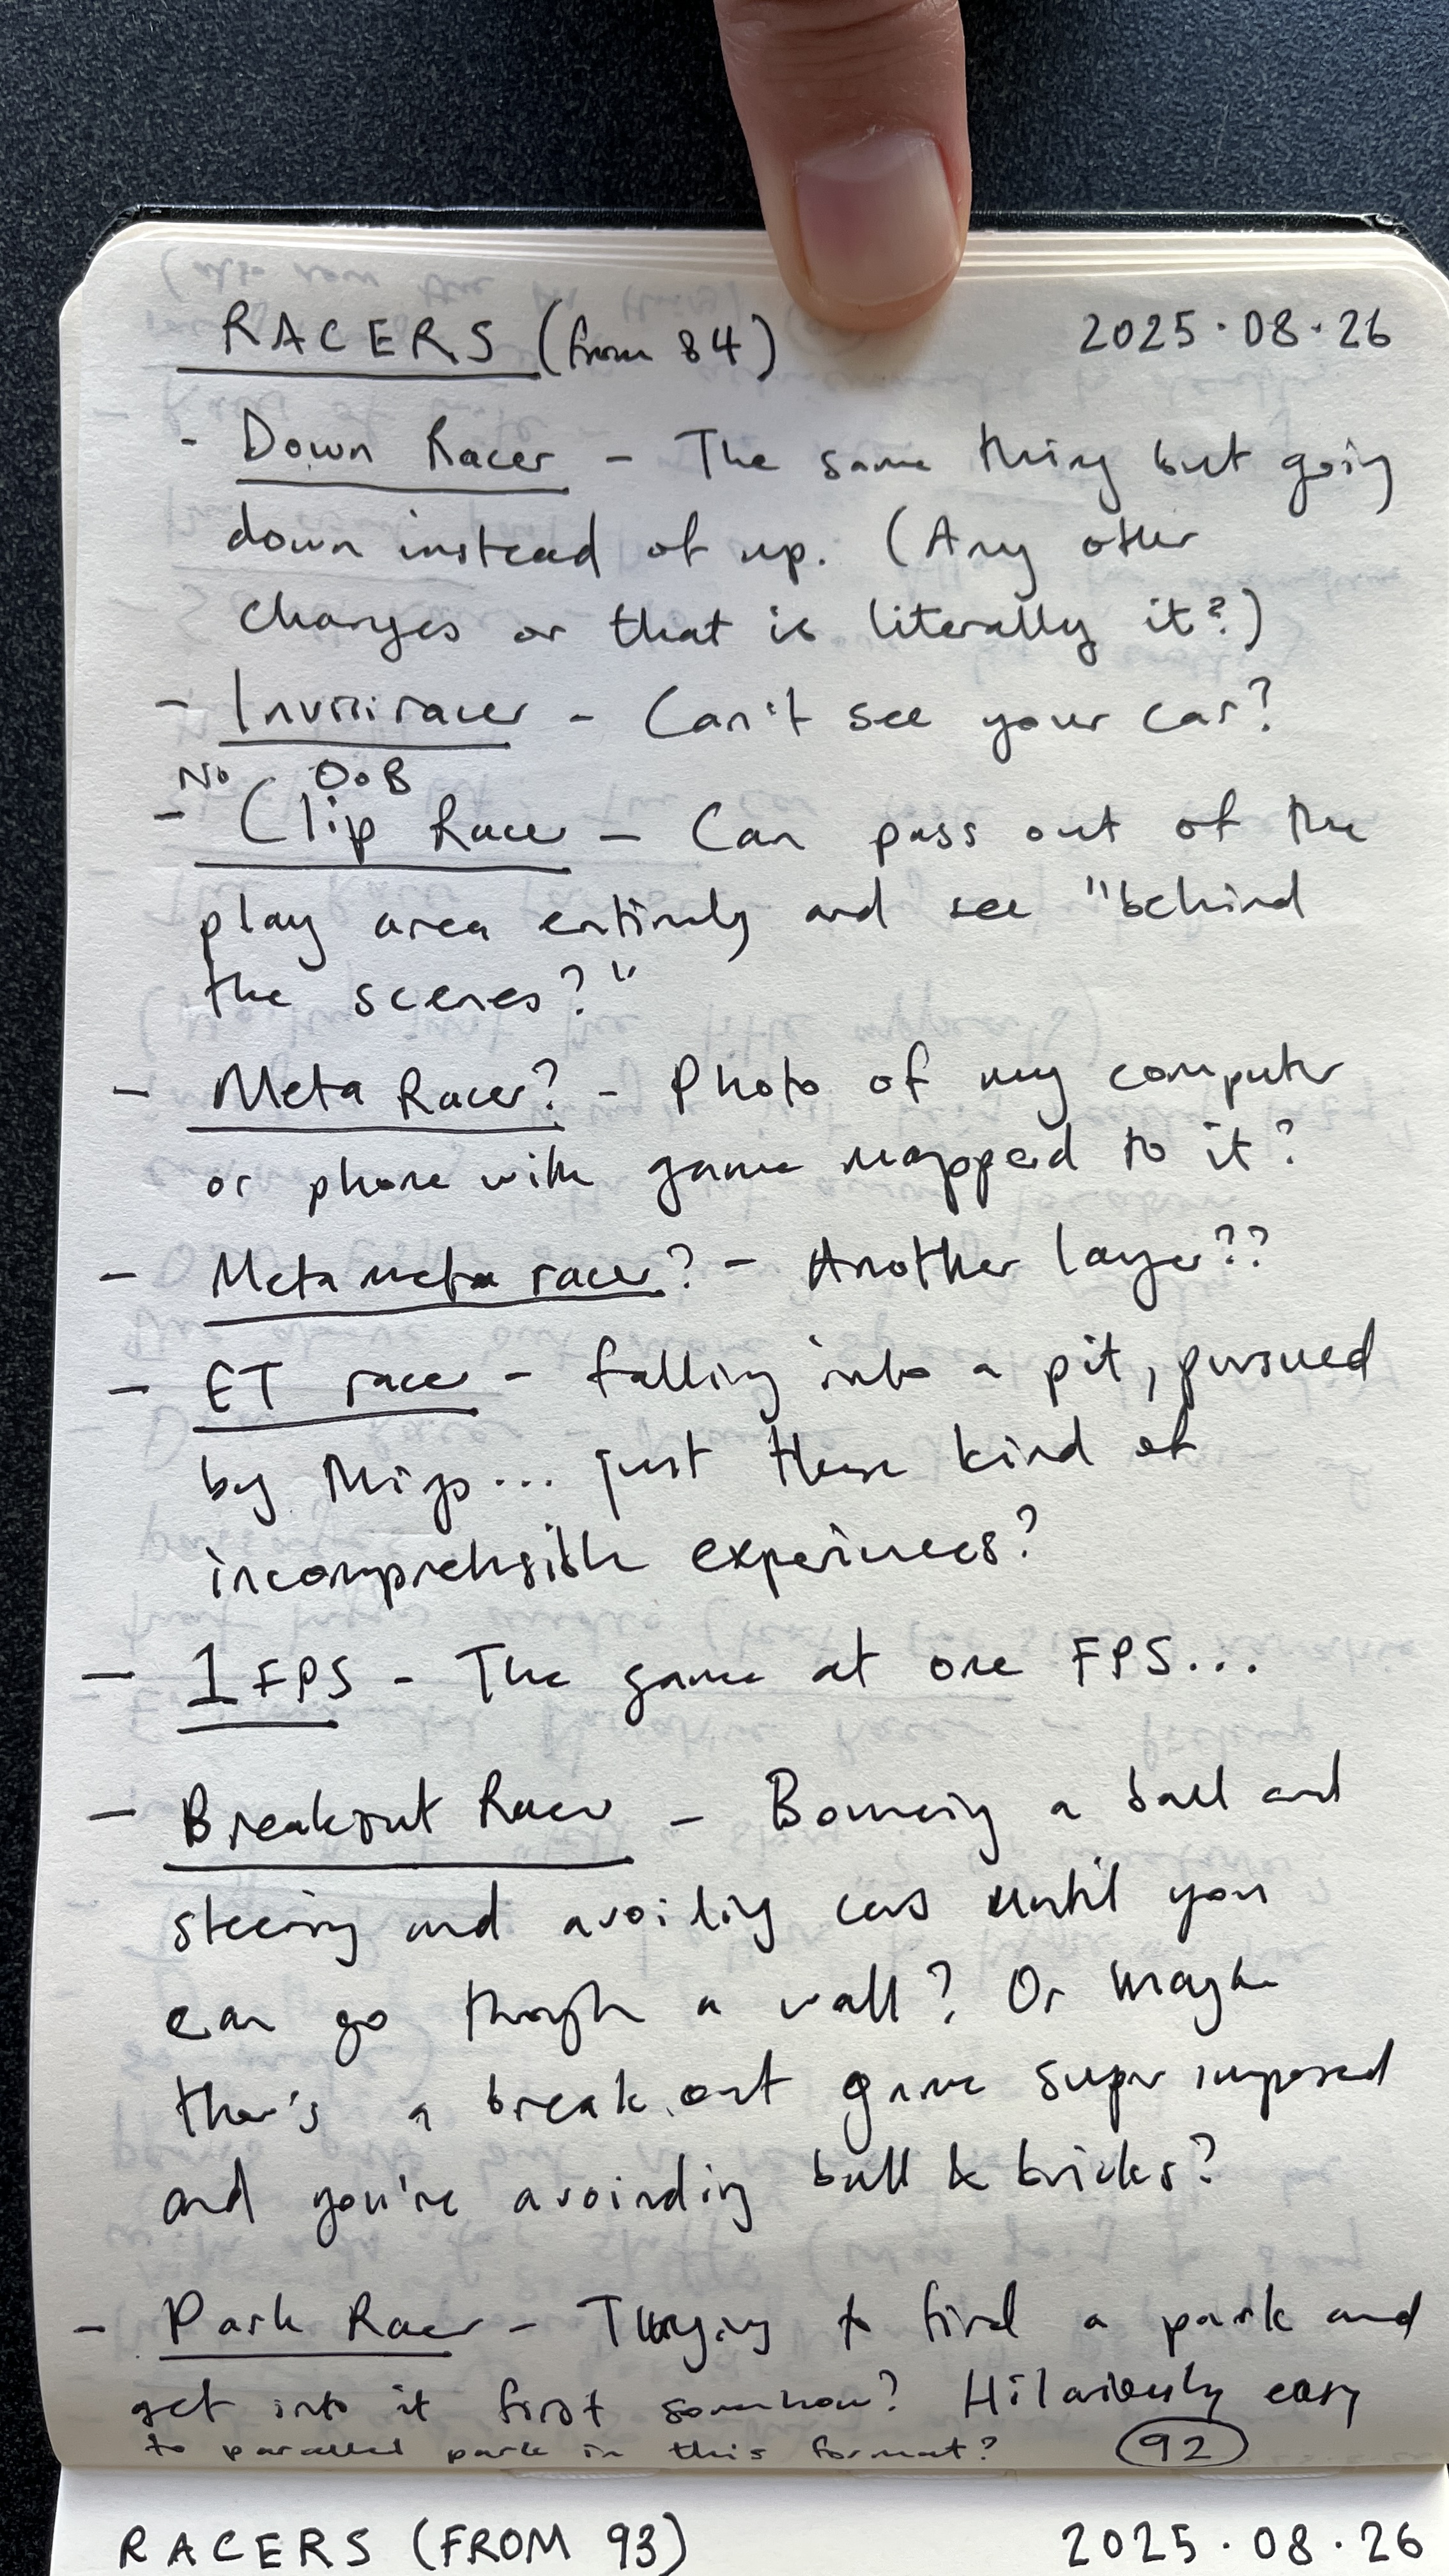 RACERS (from 84) 2025.08.26
- Down Racer - The same thing but going
down instead of up. (Any other
changes or that is literally it?)
- Invisiracer - Can't see your car?
No OoB
- Clip Racer - Can pass out of the
play area entirely and see "behind
the scenes?"
- Meta Racer? - Photo of my computer
or phone with game mapped to it?
- Meta meta racer? - Another layer??
- ET racer - falling into a pit, pursued
by ... just these kind of
incomprehsible experiences?
- 1 FPS - The game at one FPS...
- Breakout Racer - Bouncing a ball and
steering and avoiding cars until you
can go through a wall? Or maybe
there's a breakout game superimposed
and you're avoinding ball & bricks?
- Park Racer - Trying to find a park and
get into it first somehow? Hilariously easy
to parallel park in this format? 92
RACERS (FROM 93) 2025.08.26